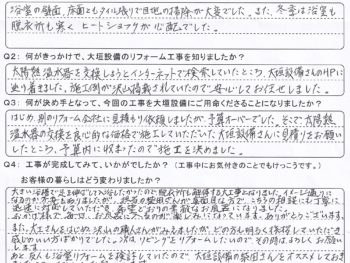 浴室の壁面、床面ともタイル張りで目地の掃除が大変でした。また、冬季は浴室も
脱衣所も寒く ヒートショックが心配でした。
Q2: 何がきっかけで、大垣設備のリフォーム工事を知りましたか?
太陽熱温水器を交換しようとインターネットで検索していたところ、大垣設備さんのHPに
辿り着きました。施工例が沢山掲載されていたので安心してお任せしました。
Q3: 何が決め手となって、今回の工事を大垣設備にご用命くださることになりましたか?
はじめ、別のリフォーム会社に見積もり依頼しましたが、予算オーバーでした。そこで太陽熱
温水器の交換を良心的な価格で施工していただいた大垣設備さんに見積りをお願いし
たところ、予算内に収まったので施工を決めました。
Q4: 工事が完成してみて、いかがでしたか?(工事中にお気付きのことでもけっこうです。)
お客様の暮らしはどう変わりましたか?
大きい浴槽で足を伸ばして入浴したかったので脱衣所も解体する大工事となりました。イメージ通りに
なるのか不安もありましたが、担当の柴田さんが
迅速に対応していただき 希望どおりの素敵なお風呂になりました。
おかげさまで、毎日、お風呂に入るのが楽しみになっています。ありがとうございます。
また、大工さんをはじめ 沢山の職人さんがみえましたが、どの方も明るく挨拶していただき
感じのいい方ばかりでした。次は、リビングをリフォームしたいので その時はよろしくお願い
します。
あと、友人も浴室リフォームを検討していたので、大垣設備の柴田さんをオススメしておき